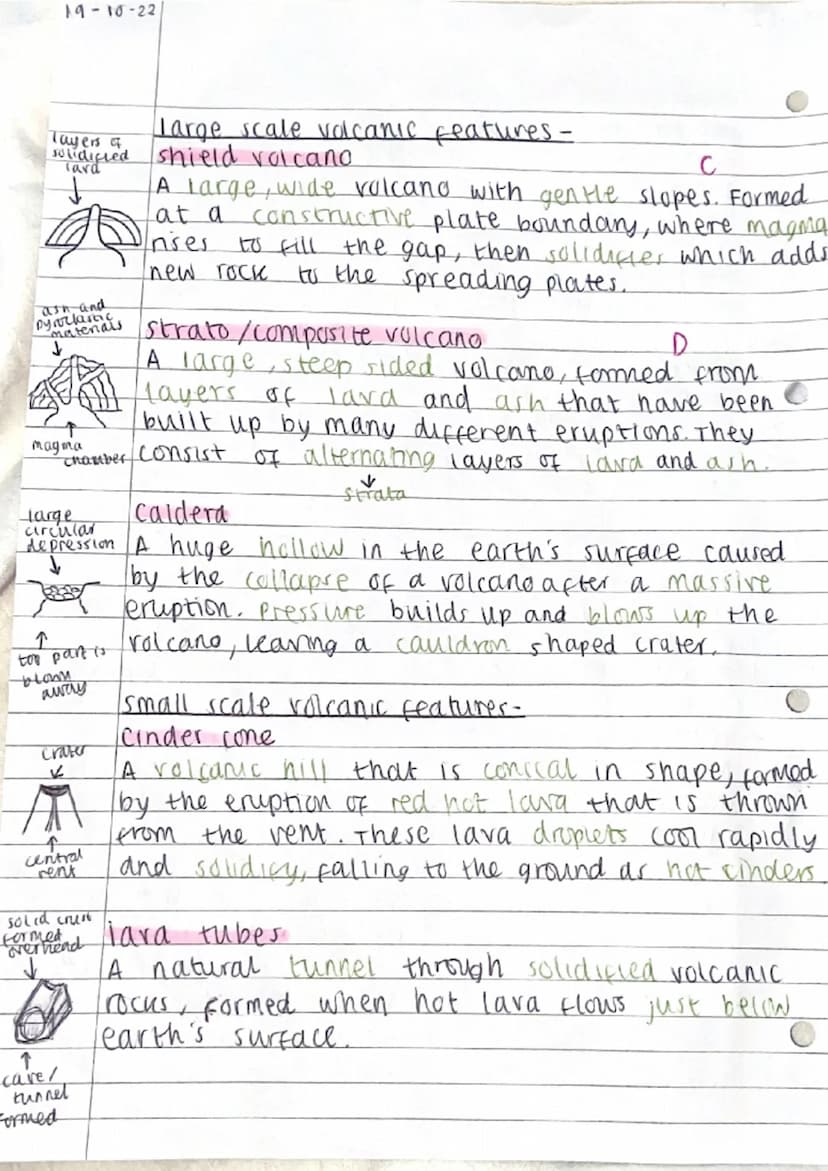 19-10-22
large scale volcanic features-
layers of
solidified
lava
shield volcano
C
A large, wide volcano with gentle slopes. Formed
at a constructive plate boundary, where magma
rises to fill the gap, then solidifies which adds
new rock to the spreading plates.
ash and
pyroclastic
materials
strato/composite volcano
D
A large, steep sided volcano, formed from
layers of lava and ash that have been
built up by many different eruptions. They
consist of alternating layers of lava and ash.
strata
magma
chamber
caldera
large
circular
depression
A huge hollow in the earth's surface caused
by the collapse of a volcano after a massive
eruption. Pressure builds up and blows up the
volcano, leaving a cauldron shaped crater.
top part is
blown
away
small scale volcanic features-
cinder cone
crater
A volcanic hill that is conical in shape, formed
by the eruption of red hot lava that is thrown
from the vent. These lava droplets cool rapidly
and solidify, falling to the ground as hot cinders
central
vent
solid crust
formed
overhead
lava tubes
A natural tunnel through solidified volcanic
rocks, formed when hot lava flows just below
earth's surface.
cave/
tunnel
formed